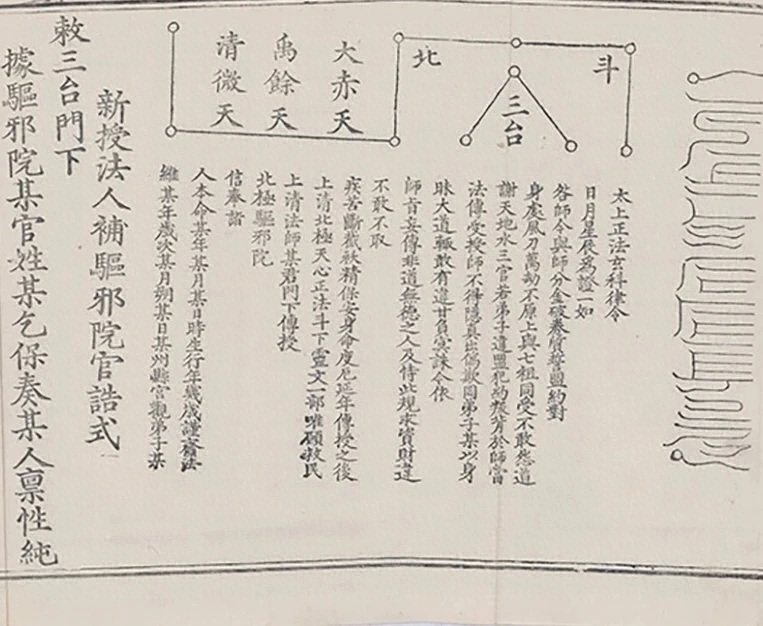 清微天
禹餘天
大赤天
北
斗
三台
維某年歲次某月朔某日某州縣宮觀弟子某
人本命某年某月某日時生行年幾歲謹齎法
信奉詣
北極驅邪院
上清法師某君門下傳授
上清北極天心正法斗下靈文一部唯願救民
疾苦斷截祅精保安身命度厄延年傳授之後
不敢不取
師旨妄傳非道無德之人及恃此規求貨財違
昧大道輒敢有違甘負冥誅令依
法傳受授師不得隱真出偽欺罔弟子某以身
謝天地水三官若弟子違盟犯約殃考於師當
身處風刀萬劫不原上與七祖同受不敢怨道
咎師今與師分金破券質誓盟約對
日月星辰為證一如
太上正法玄科律令
新授法人補驅邪院官誥式
敕三台門下
據驅邪院某官姓某乞保奏某人稟性純